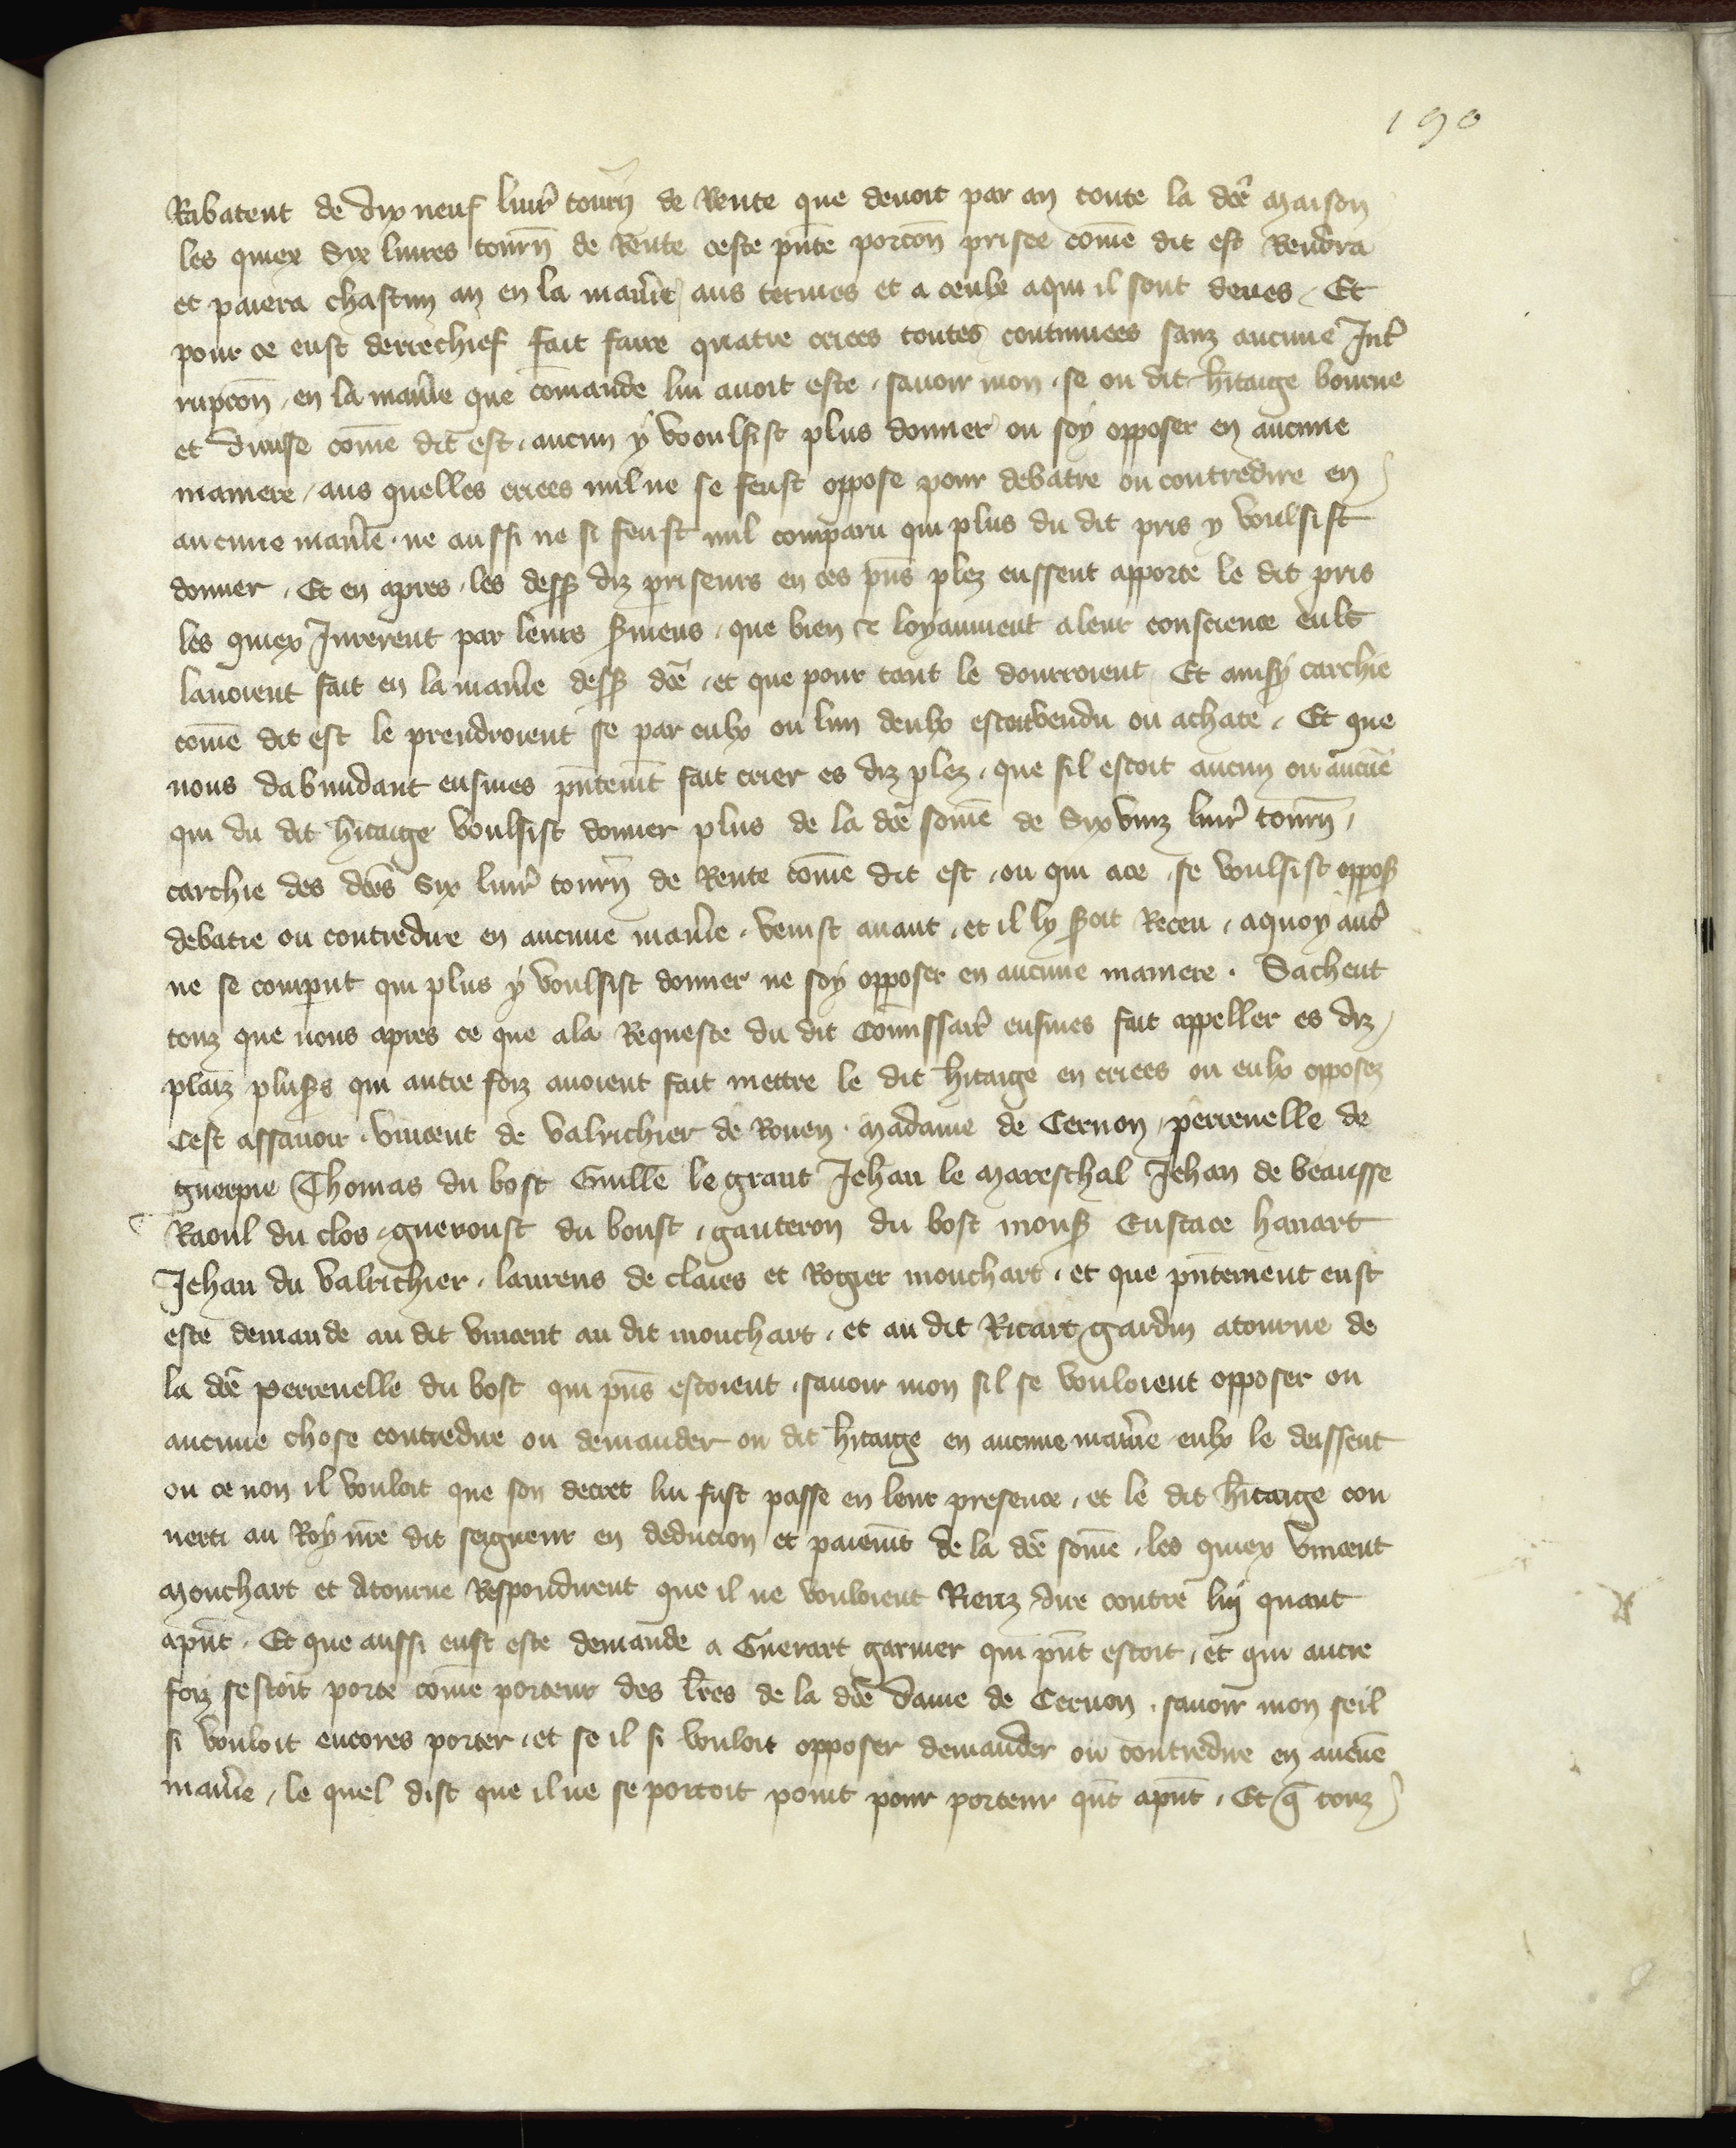 190
Rabatent de dix neuf livr̃ tourñ de Rente que devoit par an toute la dc̃e maison
les quiex Six livres tourñ de Rente ceste pñte porcoñ prisee com̃e dit est Rendra
et paiera chascun an en la manie͂ aus termes et a ceulx aqui il sont deues / Et
pour ce eust derrechief fait faire quatre criees toutes continuees sanz aucune Int̃
rupcoñ / en la manie͂ que com̃ande lui avoit este / savoir mon / se ou dit h̃itaige bourne
et divise com̃e dit est / aucun y vooulsist plus donner ou soy opposer en aucune
maniere / aus quelles criees nul ne se feust oppose pour debatre ou contredire en
aucune manie͂ / ne aussi ne si feust nul comparu qui plus du dit pris y voulsist
donner / Et en apres / les dess̃ diz priseurs en ces pñs plez eussent apporte le dit pris
les quiex Jurerent par leurs s̃mens / que bien et loyaument a leur conscience eulz
lavoient fait en la manie͂ dess̃ dc̃e / et que pour tant le donrroient / Et ainsy carchie
com̃e dit est le prendroient se par eulx ou lun deulx estoit vendu ou achate / Et que
nous dabundant eusmes pñtem̃t fait crier es diz plez / que sil estoit aucun ou aucun̄e
qui du dit h̃itaige voulsist donner plus de la dc̃e som̃e de Six vinz livr̃ tourñ /
carchie des dc̃es Six livr̃ tourñ de Rente com̃e dit est / ou qui ace / se voulsist oppos̃
debatre ou contredire en aucune manie͂ / venist avant / et il ly s̃oit Receu / aquoy aut̃
ne se comput qui plus y voulsist donner ne soy opposer en aucune maniere . Sachent
touz que nous apres ce que a la Requeste du dit Com̃issair̃ eusmes fait appeller es diz
plaiz plus̃s qui autre foiz avoient fait mettre le dit h̃itaige en criees ou eulx opposez
Cest assavoir / vincent de valrichier de Rouen . Madame de Cernon / perrenelle de
guerpie Thomas du bost Guille͂ le grant Jehan le mareschal Jehan de beausse
Raoul du clos / gueroust du boust / gauteron du bost mons̃ Eustace havart
Jehan du valrichier / laurens de claies et Rogier mouchart / et que pñtement eust
este demande au dit vincent au dit mouchart / et au dit Ricart gardin atourne de
la dc̃e perrenelle du bost qui pñs estoient / savoir mon sil se vouloient opposer ou
aucune chose contredire ou demander ou dit h̃itaige en aucune manie͂ eulx le deissent
ou ce non il vouloit que son decret lui fust passe en leur presence / et le dit h̃itaige con
verti au Roy nr̃e dit seigneur en deducion et paiem̃t de la dc̃e som̃e / les quiex vincent
Mouchart et Atourne Respondirent que il ne vouloient Rienz dire contre luy quant
apñt / Et que aussi eust este demande a Guerart garnier qui pñt estoit / et qui autre
foiz sestoit porte com̃e porteur des lr̃es de la dc̃e Dame de Cernon / savoir mon seil
si vouloit encores porter / et se il si vouloit opposer demander ou contredire en aucun̄e
manie͂ / le quel dist que il ne se portoit point pour porteur qñt apñt / Et q̃ touz